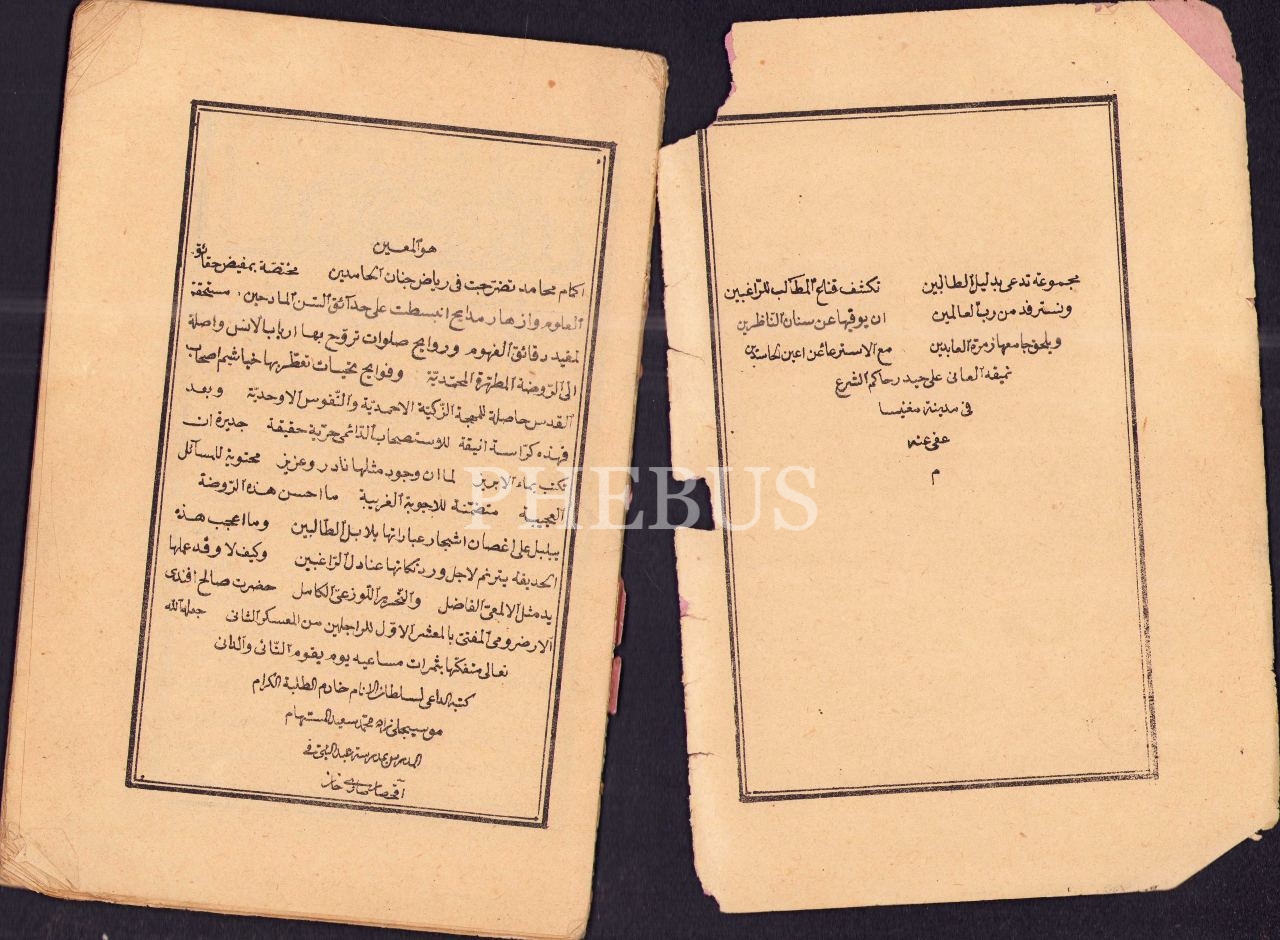 مجموعة تدعى بدليل الطالبين تكشف قناع المطالب للراغبين
ونسترفد من رب العالمين ان يوقيها عن سنان الناظرين
ويلحق جامعها زمرة العابدين مع الاسترعا عن اعين الحاسدين
نميقه العانى على حيدر حاكم الشرع
فى مدينة مغنيسا
عفى عنه
م
هو المعين
اكمام محامد تضرجت فى رياض جنان الحامدين مختصة بمفيض حقائق
العلوم وازهار مدايح انبسطت على حدائق السن المادحين، مستحقة
لمفيد دقائق الفهوم وروايح صلوات تروّح بها ارباب الانس واصلة
الى الروضة المطهرة المحمدية وفوايح تحيات تعطر بها خياشيم اصحاب
القدس حاصلة للمهجة الزكية الاحمدية والنفوس الاوحدية وبعد
فهذه كراسة انيقة للاستصحاب الدائمى حرية حقيقة جديرة ان
تكتب بماء الابريز لما ان وجود مثلها نادر وعزيز محتوية للمسائل
العجيبة متضمنة للاجوبة الغريبة ما احسن هذه الروضة
يبلبل على اغصان اشجار عباراتها بلابل الطالبين وما اعجب هذه
الحديقة يترنم لاجل ورد نكاتها عنادل الراغبين وكيف لا وقد عملها
يد مثل الالمعى الفاضل والنحرير اللوزعى الكامل حضرت صالح افندى
الارضرومى المفتى بالمعشر الاول للراجلين من المعسكر الثانى جعله الله
تعالى متفكها بثمرات مساعيه يوم يقوم النائى والدانى
كتبه الداعى لسلطان الانام خادم الطلبة الكرام
زاده محمد سعيد المستهام
المدرس بمدرسة عبد
PHEBUS